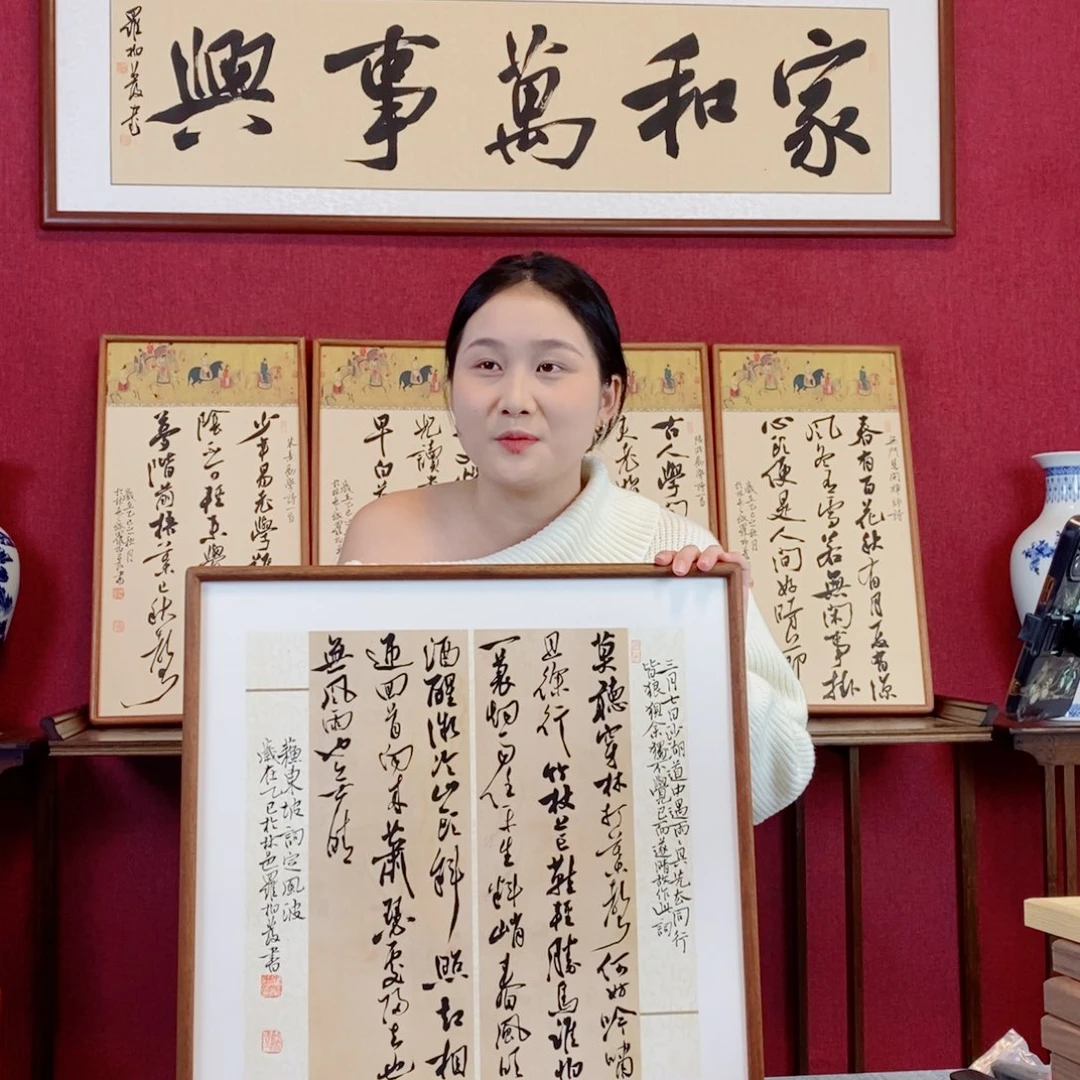 家和萬事興
春有百花秋有月夏有涼
風冬有雪若無閑事掛
心頭便是人間好時節
古人學問
悔讀
早白首
朱熹勸學詩一首
少年易老學難
陰不可輕未覺
夢階前梧葉已秋聲
三月七日沙湖道中遇雨雨具先去同行
皆狼狽余獨不覺已而遂晴故作此詞
莫聽穿林打葉聲何妨吟嘯
且徐行竹杖芒鞋輕勝馬誰怕
一蓑烟雨任平生料峭春風吹
酒醒微冷山頭斜照卻相
迎回首向來蕭瑟處歸去也
無風雨也無晴
蘇東坡詞定風波
歲在乙巳於林邑羅柏書